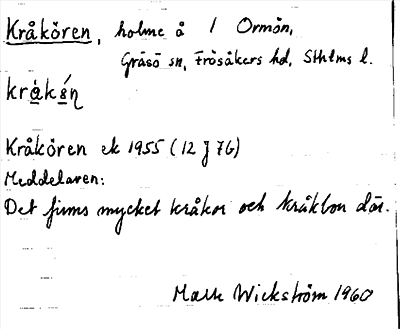 Kråkören, holme å / Ormön,
Gräsö sn, Frösåkers hd, Sthlms l.
Kråkören ek 1955 (12 J 7G)
Meddelaren:
Det finns mycket kråkor och kråkbon där.
Wickström 1960